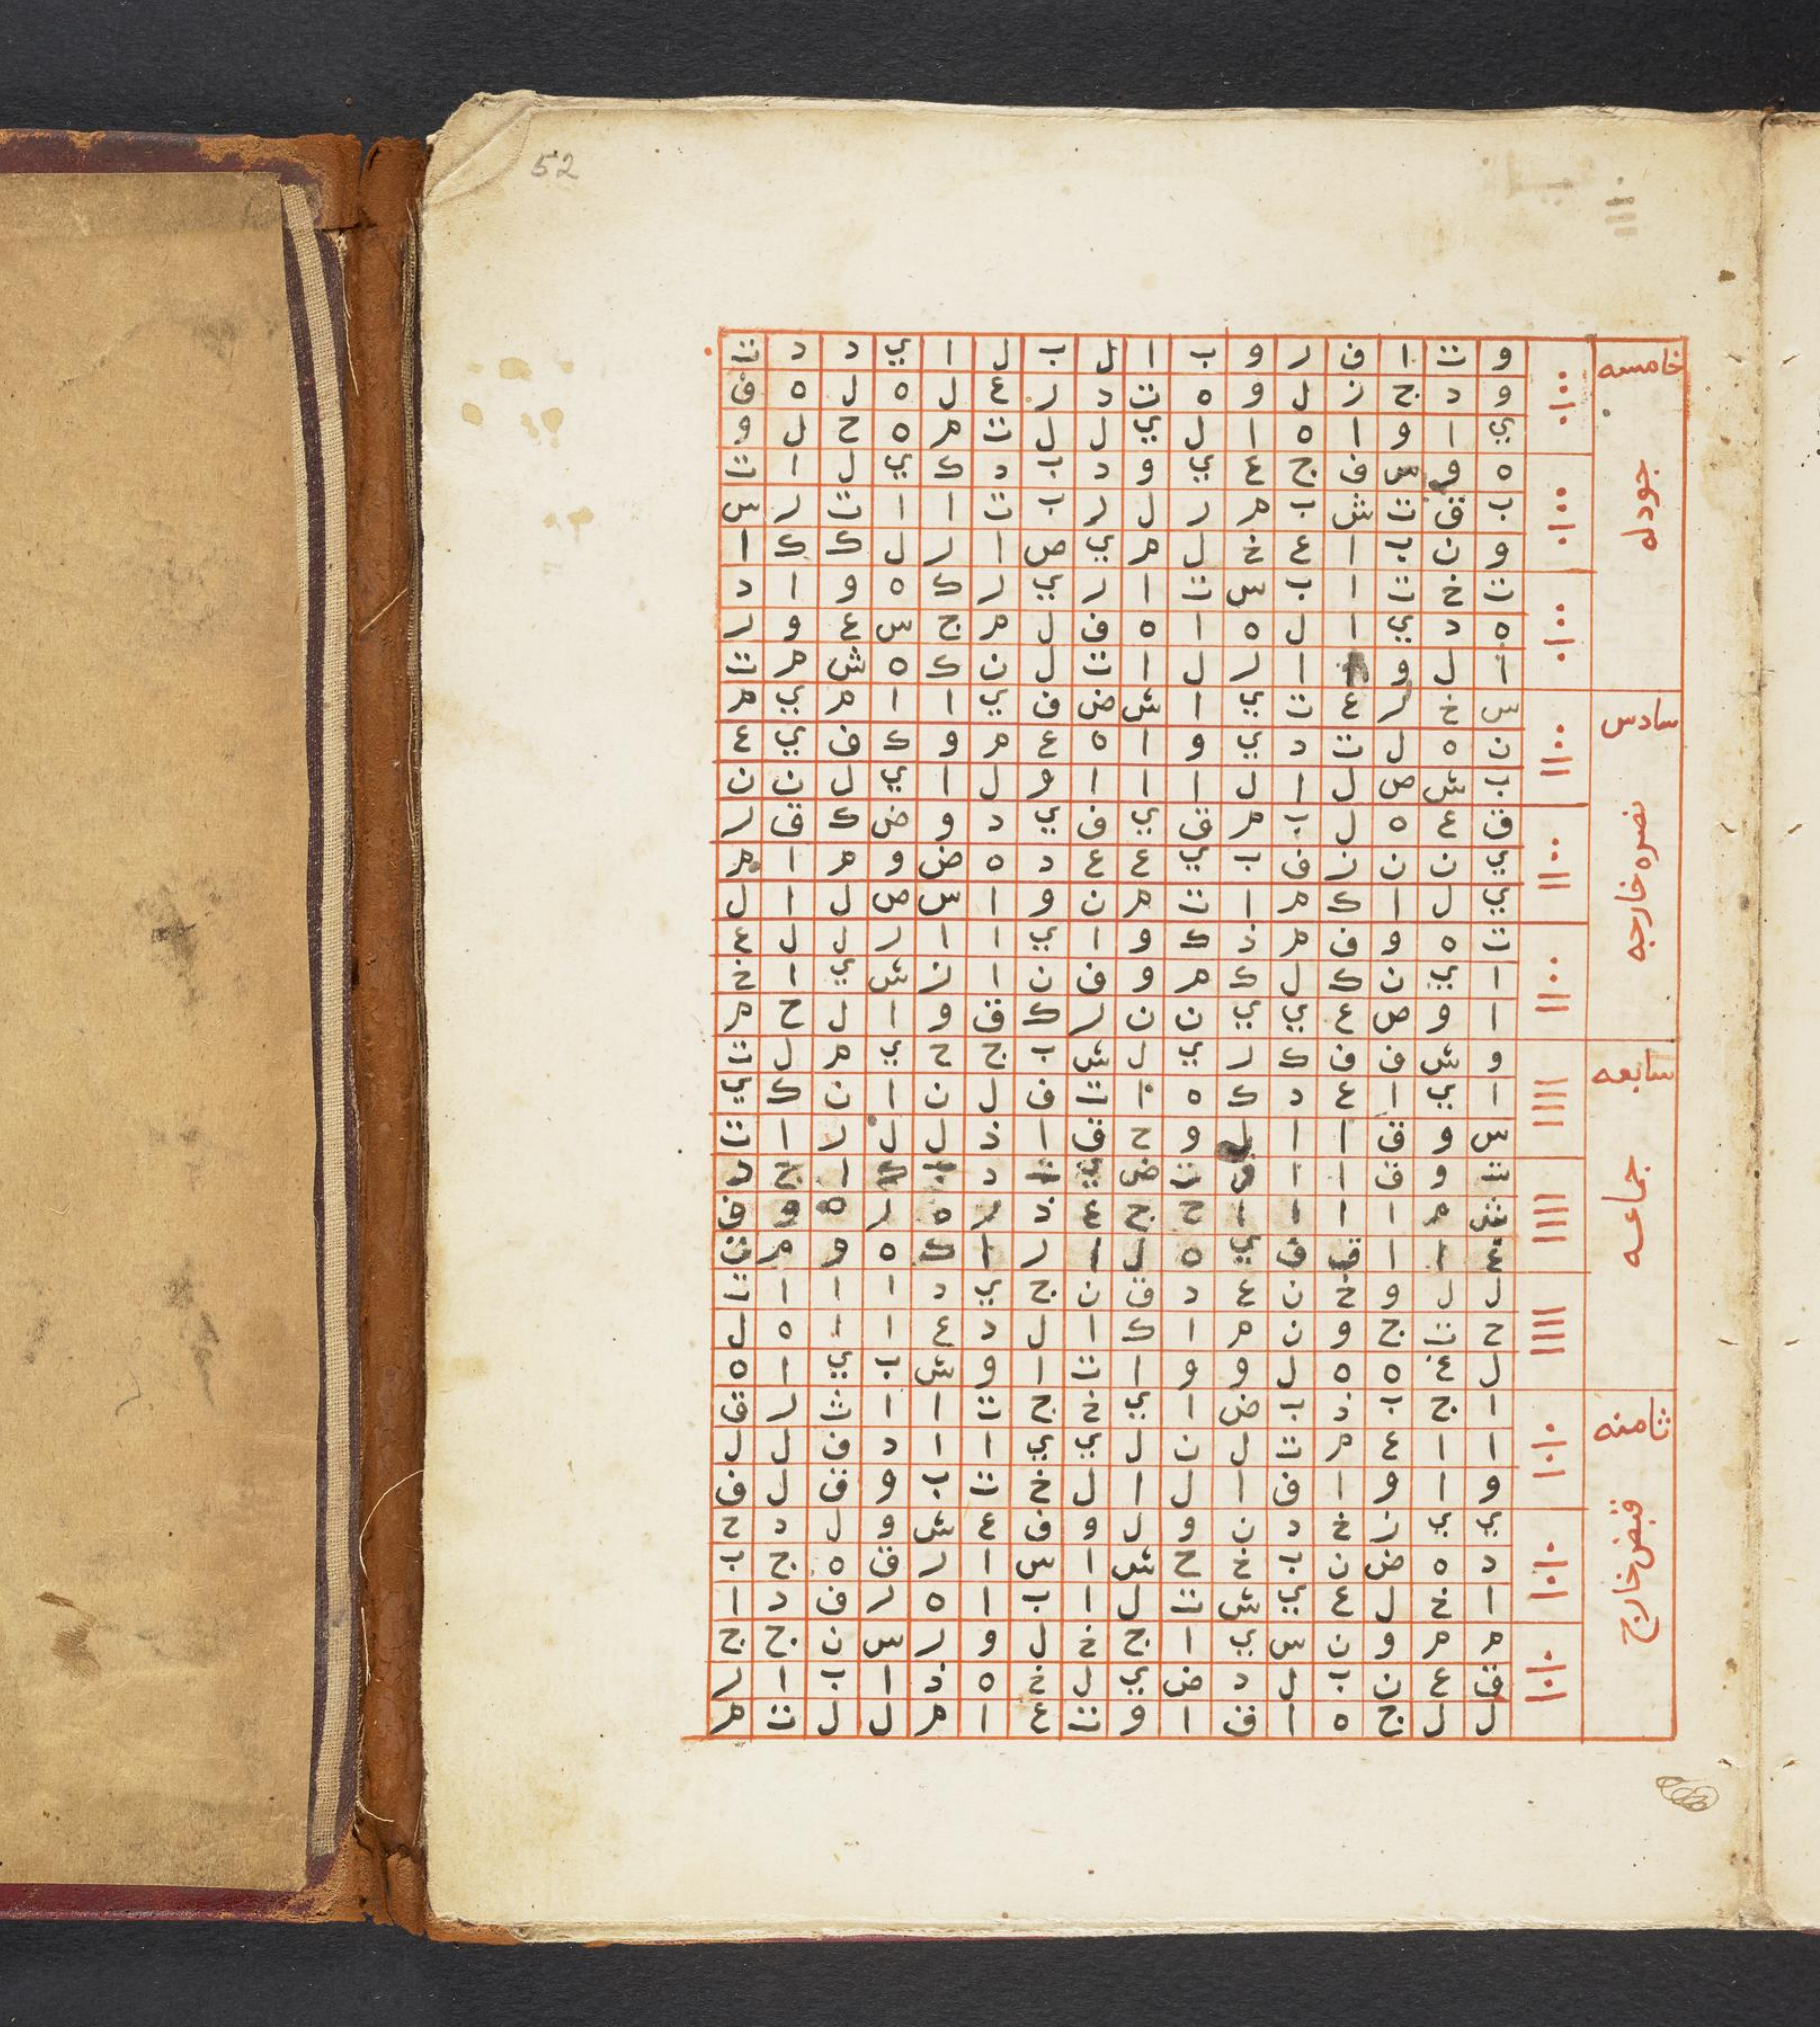 52
خامسه
جودله
و ت ا ف ر و ب ا ل ب ل ا ي د د ت
و د ج ز ل و ه ت د ر ع ل ه ل ه ف
ي ا و ا ه ا ل ي ل ل ت م ه ح ل و
ه و س ف ج ع ي و د ب د ك ي ل ا ت
ب ق ت ش ب م ر ل ر ب ت ا ا ت ر س
و ن ب ا ع خ ل م ي ص ا ر ل ك ك ا
ت خ ت ا ب س ت ا ر ي ر ك ه و ا د
ه د ي ا ل ه ا ه ف ل م ج س ع و ر
ا ل و ا ر ل ا ت ل ن ك ه ش م ت
سادس
نصره خارجه
س خ ر ع ت ي ا ش ض ف ي ا ا م ي م
ن ه ل ت د ي و ا ه ع م و ك ف ي ع
ب ش ص ل ا ل ا ا ا و ل ا ي ل ن ن
ق ع ه ل ب م ق ي ف ي د و ض ك ق ر
ي ن ن ز ف ب ي ع ع د ه ض و م ا م
ي ل ا ك م ا ت م ن و ا س ص ل ا ل
ت ه و ف م ذ ك و ا ي ا ا ر ل ل ع
ا ي ن ك ل ك م و ف ن ا ز ش ي ا خ
ا و ص ع ي ي ن ن ر ك ق و ا ل ح م
سابعه
جماعه
و ش ف ف ك ر ي ل ش ب ج ح ي م ل ت
ا ي ا ع د ك ه ا ت ف ل ن ا ن ك ي
س و ق ا ا ل و ح ق ا ذ ل ل ر ا ت
ت و ق ا ا و ت ض ي ت د ب ك ا ج د
ش م ا ا ا ا ح ج ع ذ ر ه ر ه و ف
ع ا ا ق ف ي ه ل ا ر ا ك ه و م ن
ل ل و خ ن ع د ق ن ج ي د ا ا ا ت
ح ت ج و ن م ا ك ا ل د ع ا ا ه ل
ل ع ه ه ل و و ا ت ا و ش ب ي ا ه
ثامنه
قبض خارج
ا ج ب ذ ب ض ا ي خ ج ت ا ا ث ر ق
ا ا ع م ت ل ن ل ي ي ا ا د ف ل ل
و ا و ا ف ا ل ا ل خ ت ب و ق ل ف
ي ي ز خ د ن و ل و ف ع ش و ل د ح
د ه ض ن ب خ ح ش ا س ا ر ق ه ج ب
ا خ ل ع ي ش ت ل ا ب ا ه ر ف د ا
م م و ن س ي ا ج خ ل و ر س ن ج ج
ق ع ن ب ل د ض ي ل خ ه ذ ا ب ا ر
ل ل ج ه ا ق ا و ت ع ا م ل ل ت م